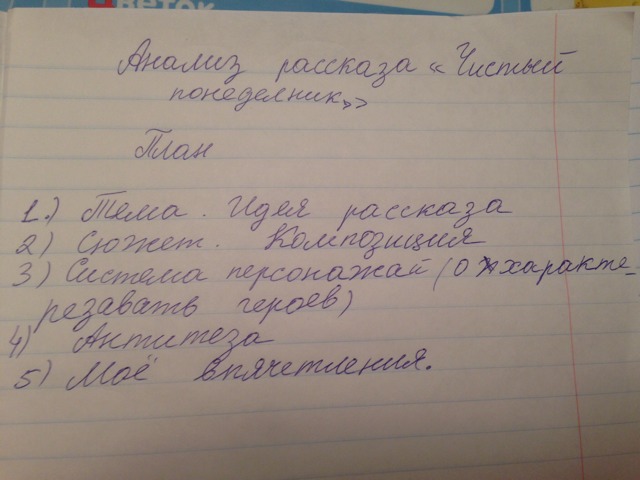 Цветок
Анализ рассказа «Чистый
понеделник»
План
1.) Тема. Идея рассказа
2) Сюжет. Композиция
3) Система персонажай (Охаракте-
резавать героев)
4) Антитеза
5) Моё впячетления.